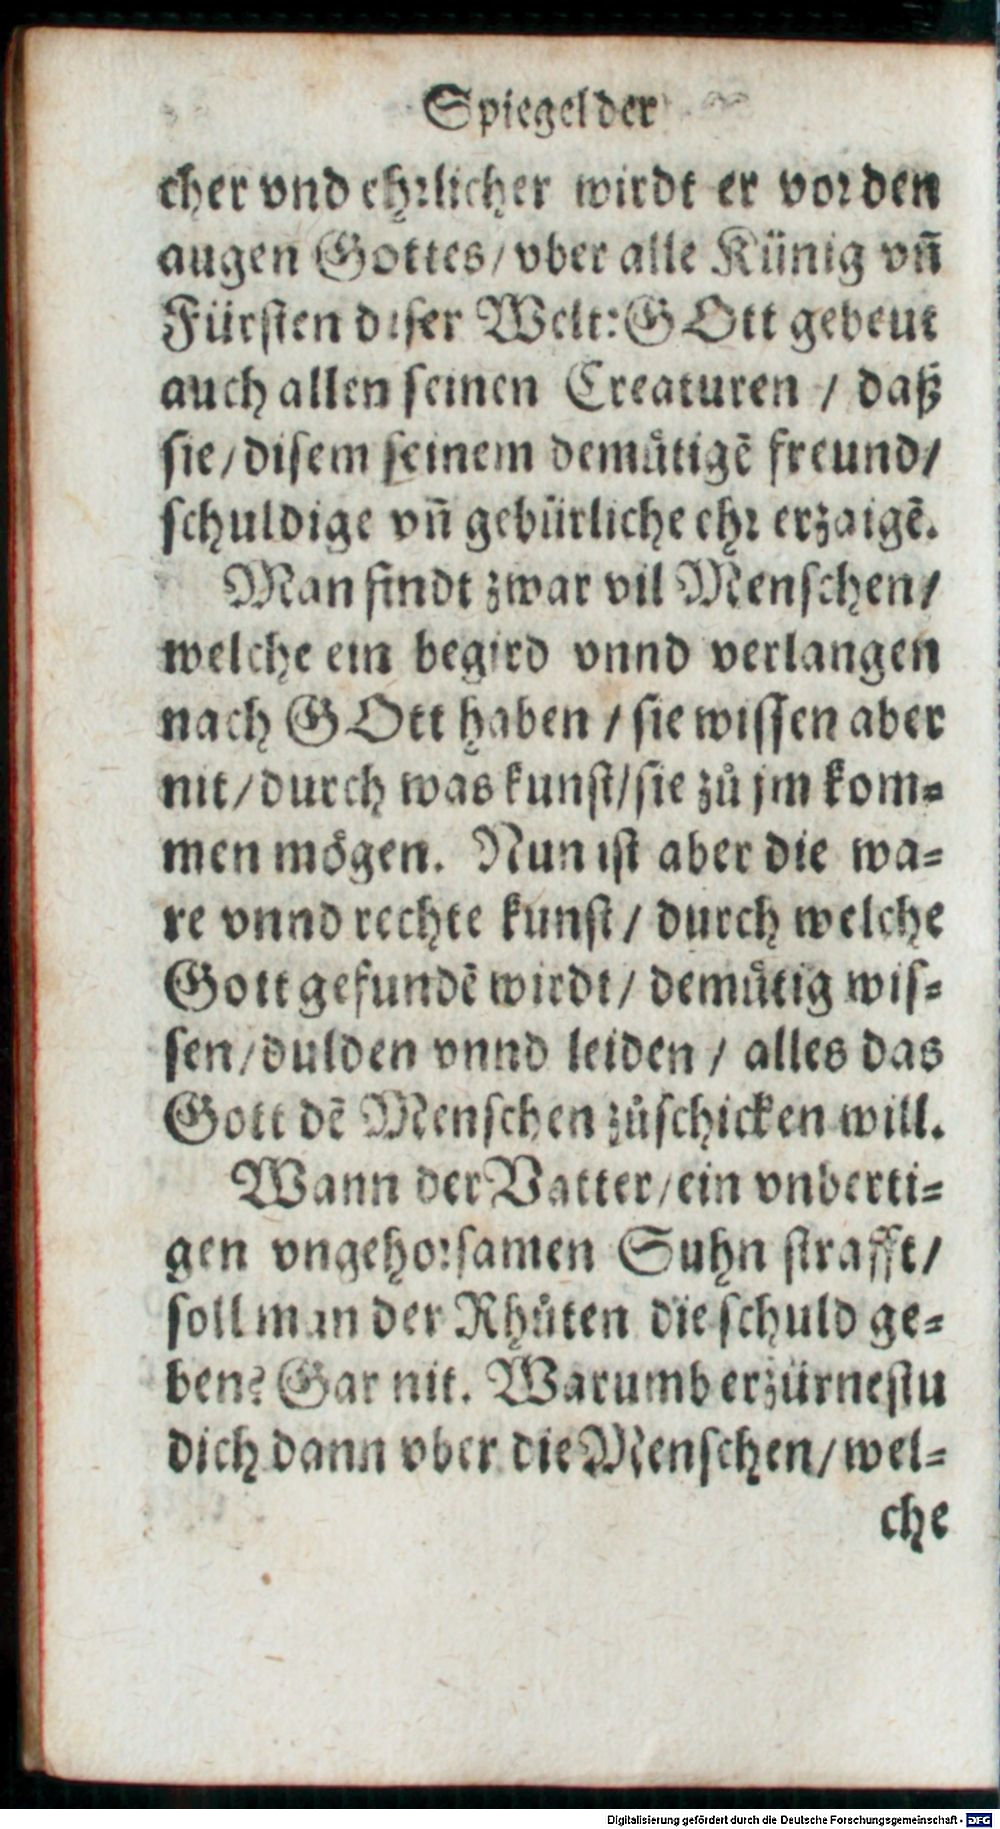 Spiegel der
cher vnd ehrlicher wirdt er vor den
augen Gottes/ vber alle Künig vn̄
Fürsten diser Welt: GOtt gebeut
auch allen seinen Creaturen / daß
sie/ disem seinem demuͤtigē freund/
schuldige vn̄ gebürliche ehr erzaigē.
Man findt zwar vil Menschen/
welche ein begird vnnd verlangen
nach GOtt haben / sie wissen aber
nit/ durch was kunst/ sie zů jm kom⸗
men moͤgen. Nun ist aber die wa⸗
re vnnd rechte kunst/ durch welche
Gott gefundē wirdt/ demuͤtig wis⸗
sen/ dulden vnnd leiden / alles das
Gott dē Menschen zůschicken will.
Wann der Vatter/ ein vnberti⸗
gen vngehorsamen Suhn strafft/
soll man der Rhůten die schuld ge⸗
ben? Gar nit. Warumb erzürnestu
dich dann vber die Menschen/ wel⸗
che
Digitalisierung gefördert durch die Deutsche Forschungsgemeinschaft - DFG